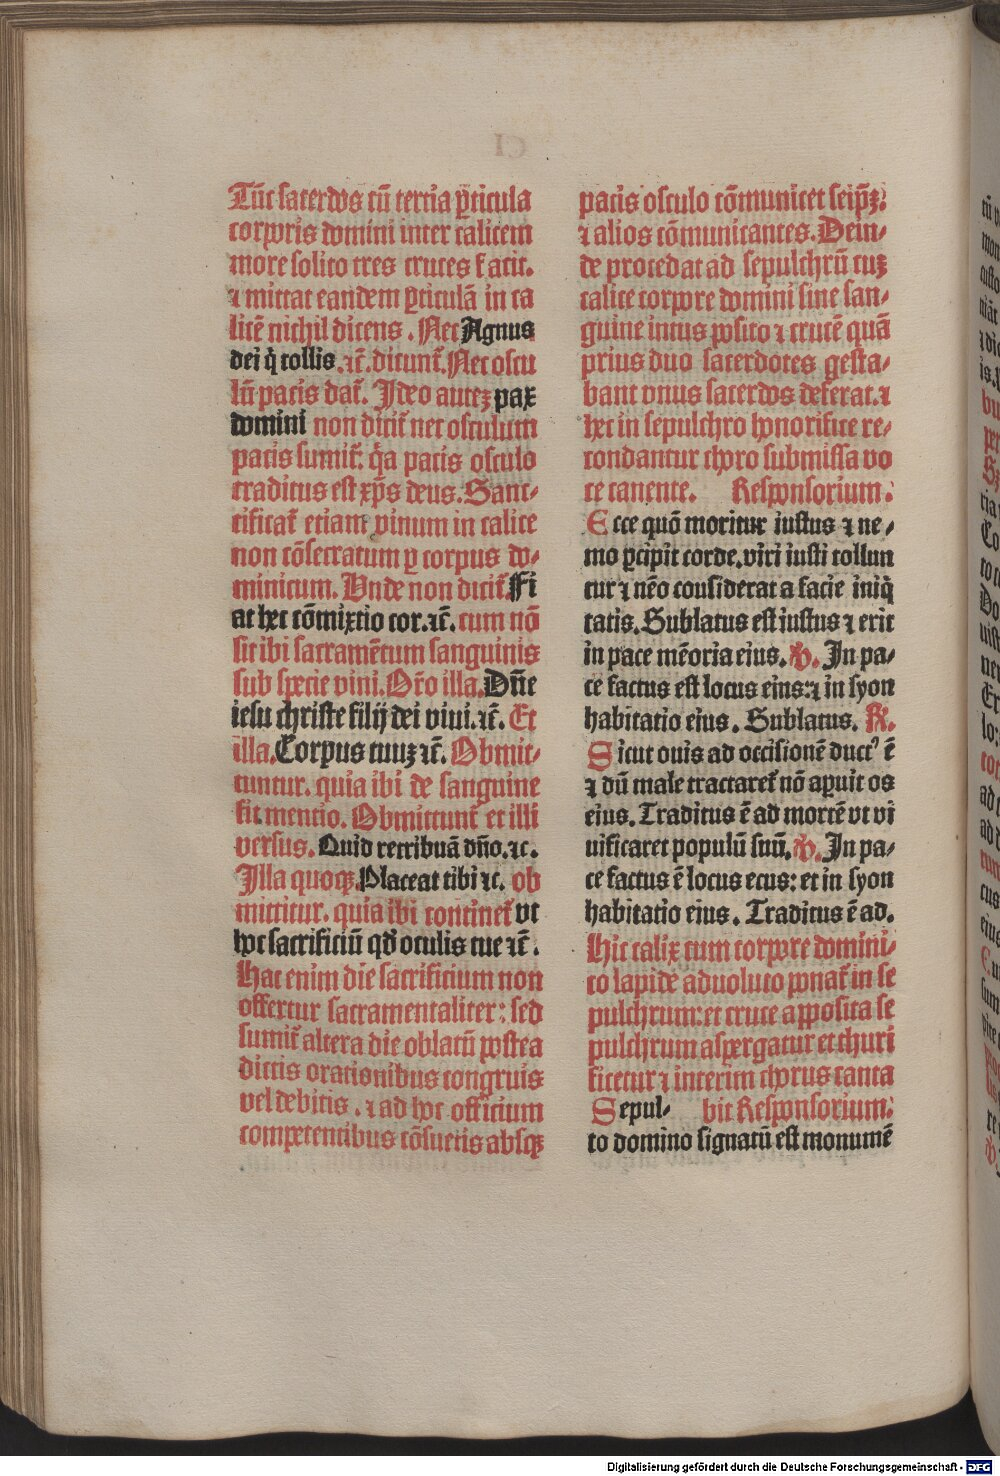 Tūc sacerdos cū tertia ꝑticula
corporis domini inter calicem
more solito tres cruces facit.
⁊ mittat eandem ꝑticulā in ca
licē nichil dicens. Nec Agnus
dei q̇ tollis .⁊c̄. dicunt᷑. Nec oscu
lū pacis dat᷑. Ideo autez pax
domini non dicit᷑ nec osculum
pacis sumit᷑: q̇a pacis osculo
traditus est xp̄s deus. Sanc⸗
tificat᷑ etiam vinum in calice
non cōsecratum ꝑ corpus do⸗
minicum. Vnde non dicit᷑. Fi
at hec cōmixtio cor.⁊c̄. cum nō
sit ibi sacramētum sanguinis
sub specie vini. Or̄o illa. Dn̄e
iesu christe filij dei viui.⁊c̄. Et
illa. Corpus tuuꝫ ⁊c̄. Obmit⸗
tuntur. quia ibi de sanguine
fit mentio. Obmittunt᷑ et illi
versus. Quid retribuā dn̄o.⁊c.
Illa quoqꝫ. Placeat tibi ⁊c. ob
mittitur. quia ibi continet᷑ vt
hoc sacrificiū qd̄ oculis tue ⁊c̄.
Hac enim die sacrificium non
offertur sacramentaliter: sed
sumit᷑ altera die oblatū postea
dictis orationibus congruis
vel debitis. ⁊ ad hoc officium
competentibus cōsuetis absqꝫ
pacis osculo cōmunicet seip̄ꝫ:
⁊ alios cōmunicantes. Dein⸗
de procedat ad sepulchrū cuꝫ
calice corpore domini sine san⸗
guine intus posito ⁊ crucē quā
prius duo sacerdotes gesta⸗
bant vnus sacerdos deferat.⁊
hec in sepulchro honorifice re⸗
condantur choro submissa vo
ce canente. Responsorium.
Ecce quō moritur iustus ⁊ ne⸗
mo ꝑcipit corde. viri iusti tollun
tur ⁊ nēo considerat a facie iniq̇
tatis. Sublatus est iustus ⁊ erit
in pace mēoria eius. ℣. In pa⸗
ce factus est locus eius:⁊ in syon
habitatio eius. Sublatus. ℟.
Sicut ouis ad occisionē duct᾿ ē
⁊ dū male tractaret᷑ nō aperuit os
eius. Traditus ē ad mortē vt vi
uificaret populū suū. ℣. In pa⸗
ce factus ē locus ecus: et in syon
habitatio eius. Traditus ē ad.
Hic calix cum corpore domini⸗
co lapide aduoluto ponat᷑ in se
pulchrum: et cruce apposita se
pulchrum aspergatur et thuri
ficetur ⁊ interim chorus canta
Sepul⸗ bit Responsorium:
to domino signatū est monumē
Digitalisierung gefördert durch die Deutsche Forschungsgemeinschaft - DFG